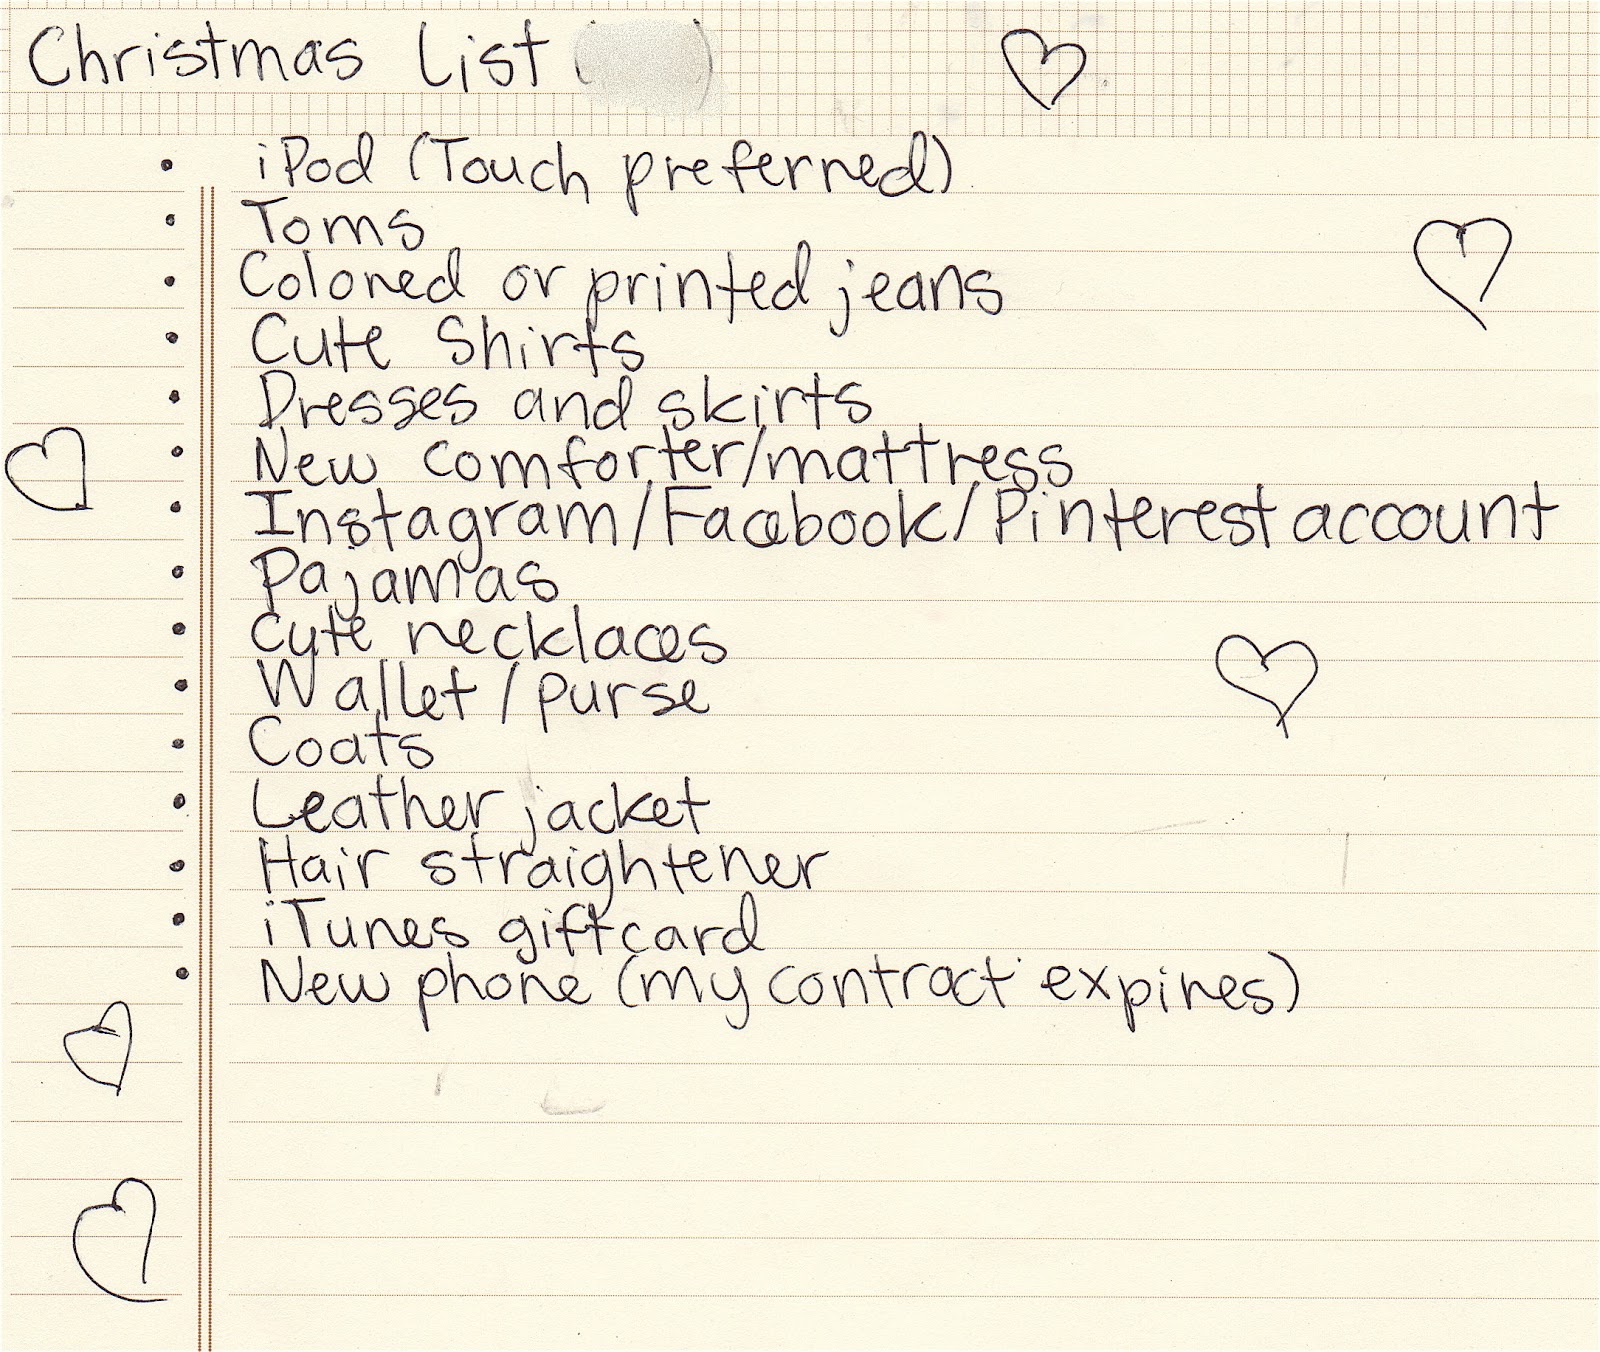 Christmas List (
• iPod (Touch preferred)
• Toms
• Colored or printed jeans
• Cute Shirts
• Dresses and skirts
• New comforter/mattress
• Instagram/Facebook/Pinterest account
• Pajamas
• Cute necklaces
• Wallet/purse
• Coats
• Leather jacket
• Hair straightener
• iTunes giftcard
• New phone (my contract expires)